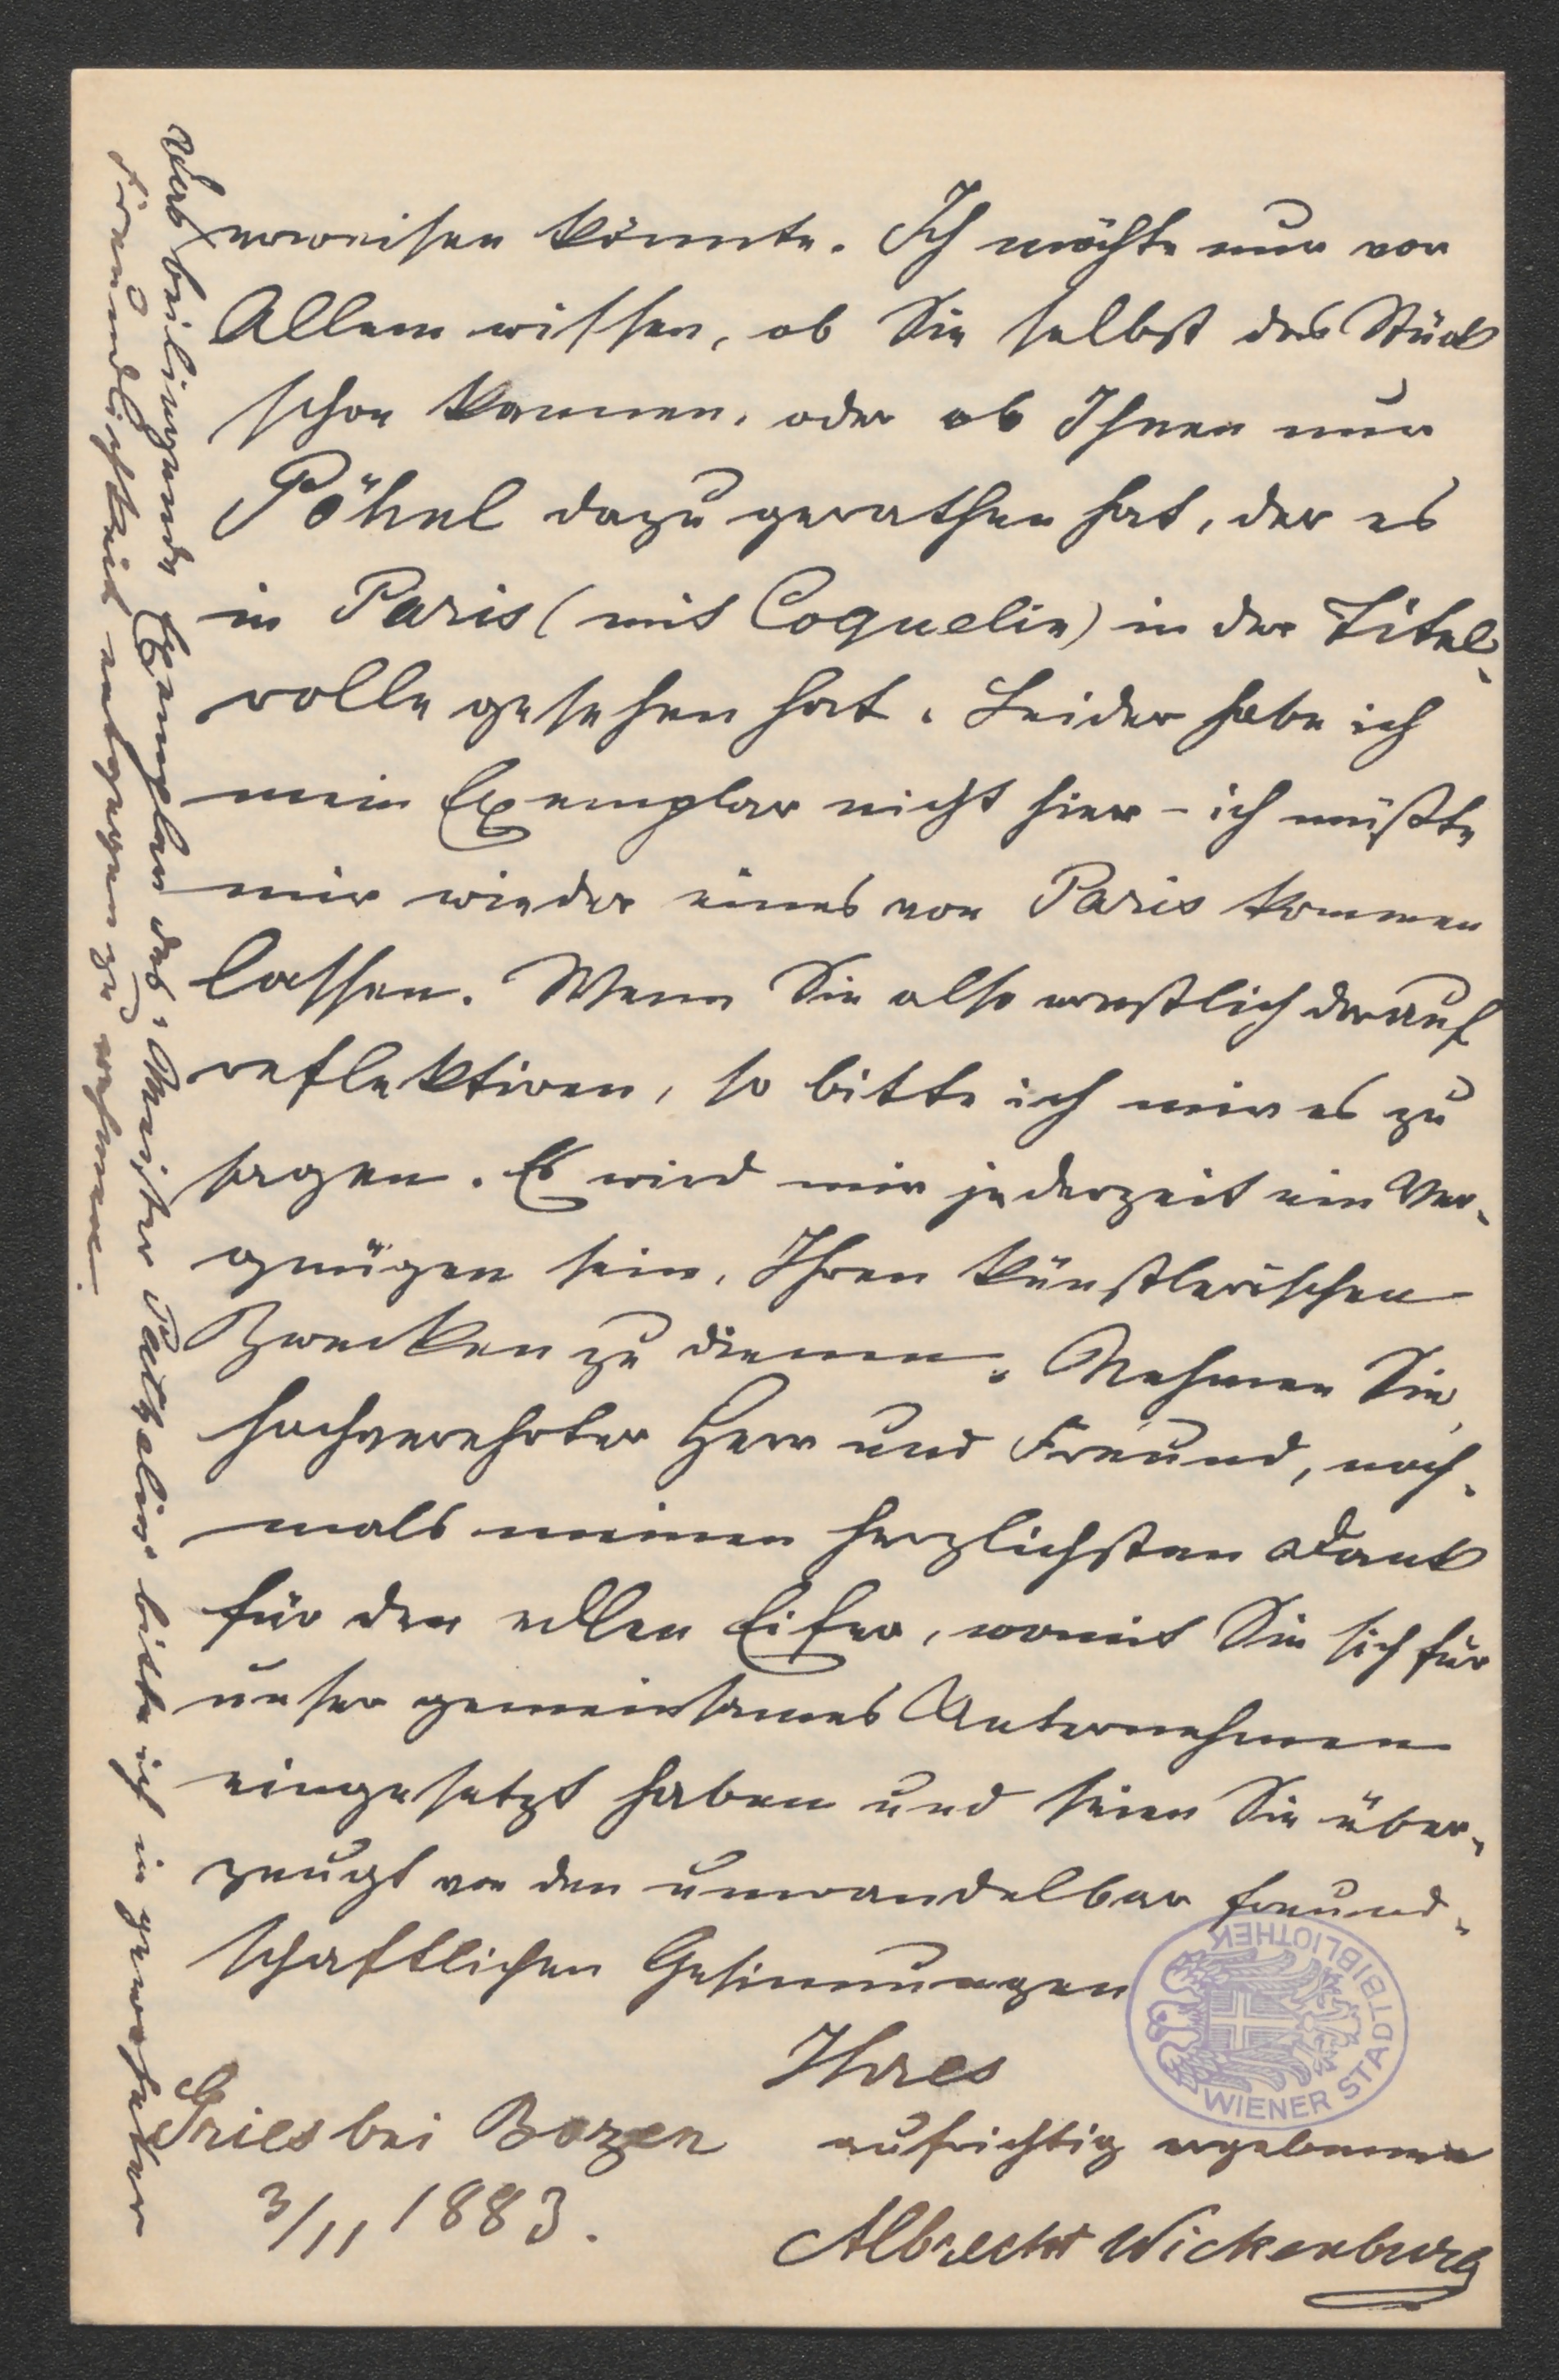 erweisen könnte. Ich möchte nur vor
Allem wissen, ob Sie selbst das Stück
schon kennen, oder ob Ihnen nur
Pöhnl dazu gerathen hat, der es
in Paris (mit Coquelin) in der Titel-
rolle gesehen hat. Leider habe ich
mein Exemplar nicht hier – ich müßte
mir wieder eines von Paris kommen
lassen. Wenn Sie also ernstlich darauf
reflektiren, so bitte ich mir es zu
sagen. Es wird mir jederzeit ein Ver-
gnügen sein, Ihren künstlerischen
Zwecken zu dienen. Nehmen Sie,
hochverehrter Herr und Freund, noch-
mals meinen herzlichsten Dank
für den edlen Eifer, womit Sie sich für
unser gemeinsames Unternehmen
eingesetzt haben und seien Sie über-
zeugt von den unwandelbar freund-
schaftlichen Gesinnungen
Ihres
aufrichtig ergebenen
Albrecht Wickenburg
Gries bei Bozen
3/11 1883.
Das beiliegende Exemplar des „Meister Pathelin“ bitte ich in gewohnter
Freundlichkeit entgegen zu nehmen.
WIENER STADTBIBLIOTHEK